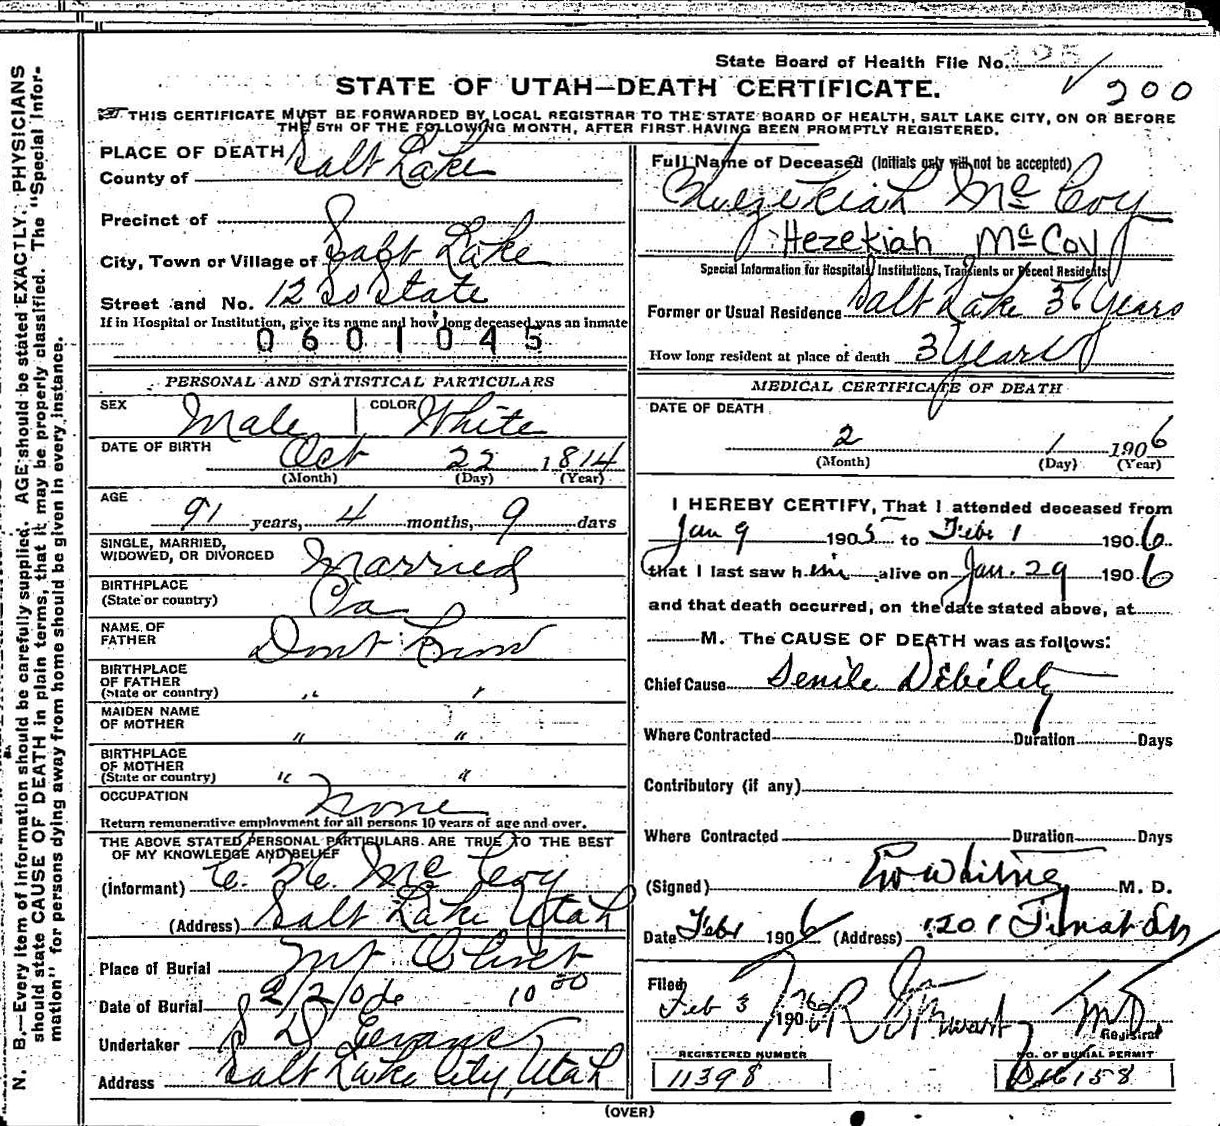 State Board of Health File No. 125
200
STATE OF UTAH—DEATH CERTIFICATE.
THIS CERTIFICATE MUST BE FORWARDED BY LOCAL REGISTRAR TO THE STATE BOARD OF HEALTH, SALT LAKE CITY, ON OR BEFORE
THE 5TH OF THE FOLLOWING MONTH, AFTER FIRST HAVING BEEN PROMPTLY REGISTERED.
N. B.—Every item of information should be carefully supplied. AGE should be stated EXACTLY. PHYSICIANS
should state CAUSE OF DEATH in plain terms, that it may be properly classified. The "Special Infor-
mation" for persons dying away from home should be given in every instance.
PLACE OF DEATH
County of Salt Lake
Precinct of
City, Town or Village of Salt Lake
Street and No. 12 So State
If in Hospital or Institution, give its name and how long deceased was an inmate
0601045
PERSONAL AND STATISTICAL PARTICULARS
SEX Male COLOR White
DATE OF BIRTH Oct 22 1814
(Month) (Day) (Year)
AGE
91 years, 4 months, 9 days
SINGLE, MARRIED,
WIDOWED, OR DIVORCED Married
BIRTHPLACE
(State or country) Pa
NAME OF
FATHER Dont Know
BIRTHPLACE
OF FATHER
(State or country) " "
MAIDEN NAME
OF MOTHER " "
BIRTHPLACE
OF MOTHER
(State or country) " "
OCCUPATION None
Return remunerative employment for all persons 10 years of age and over.
THE ABOVE STATED PERSONAL PARTICULARS ARE TRUE TO THE BEST
OF MY KNOWLEDGE AND BELIEF
(Informant) C. H. McCoy
(Address) Salt Lake Utah
Place of Burial Mt Olivet
Date of Burial 2/2/06 10 00
Undertaker S D Evans
Address Salt Lake City, Utah
Full Name of Deceased (Initials only will not be accepted)
McCoy
Hezekiah McCoy
Special Information for Hospitals, Institutions, Transients or Recent Residents
Former or Usual Residence Salt Lake 36 Years
How long resident at place of death 3 Years
MEDICAL CERTIFICATE OF DEATH
DATE OF DEATH
2 1 1906
(Month) (Day) (Year)
I HEREBY CERTIFY, That I attended deceased from
Jan 9 1905 to Feb 1 1906
that I last saw him alive on Jan. 29 1906
and that death occurred, on the date stated above, at
M. The CAUSE OF DEATH was as follows:
Chief Cause Senile Debility
Where Contracted Duration Days
Contributory (if any)
Where Contracted Duration Days
(Signed) M. D.
Date Feb 1 1906 (Address)
Filed
Feb 3 1906 Stewart MD
Registrar
REGISTERED NUMBER NO. OF BURIAL PERMIT
11398 16158
(OVER)